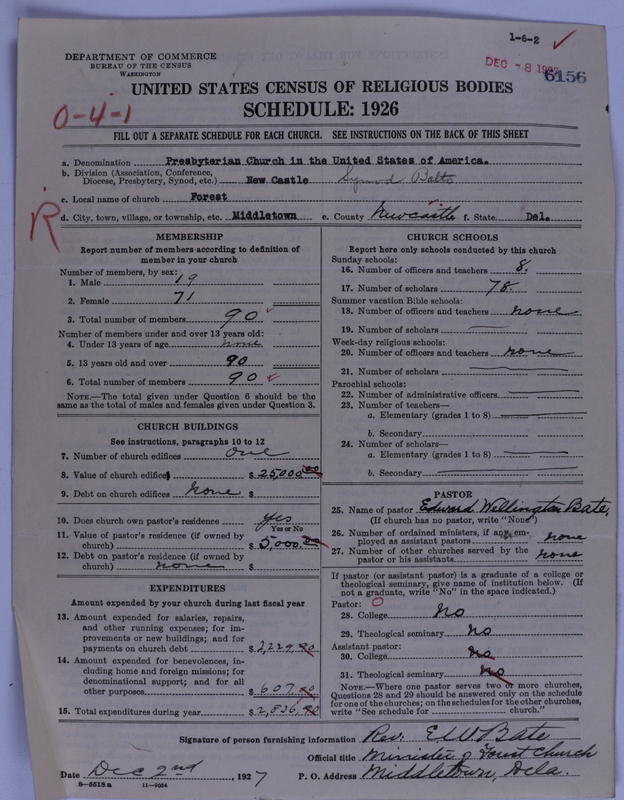 1-6-2 ✓
DEPARTMENT OF COMMERCE
BUREAU OF THE CENSUS
WASHINGTON
DEC 8 192
6156
UNITED STATES CENSUS OF RELIGIOUS BODIES
SCHEDULE: 1926
0-4-1
FILL OUT A SEPARATE SCHEDULE FOR EACH CHURCH. SEE INSTRUCTIONS ON THE BACK OF THIS SHEET
a. Denomination Presbyterian Church in the United States of America.
b. Division (Association, Conference,
Diocese, Presbytery, Synod, etc.) New Castle Synod Balto
c. Local name of church Forest
R
d. City, town, village, or township, etc. Middletown e. County Newcastle f. State Del.
MEMBERSHIP
Report number of members according to definition of
member in your church
Number of members, by sex:
1. Male 19
2. Female 71
3. Total number of members 90 ✓
Number of members under and over 13 years old:
4. Under 13 years of age none
5. 13 years old and over 90
6. Total number of members 90 ✓
NOTE.—The total given under Question 6 should be
same as the total of males and females given under Question 3.
CHURCH BUILDINGS
See instructions, paragraphs 10 to 12
7. Number of church edifices one
8. Value of church edifices $ 25,000.00
9. Debt on church edifices none $
10. Does church own pastor's residence yes
Yes or No
11. Value of pastor's residence (if owned by
church) $ 5,000.00
12. Debt on pastor's residence (if owned by
church) none $
EXPENDITURES
Amount expended by your church during last fiscal year
13. Amount expended for salaries, repairs,
and other running expenses; for im-
provements or new buildings; and for
payments on church debt $ 2,229.00
14. Amount expended for benevolences, in-
cluding home and foreign missions; for
denominational support; and for all
other purposes $ 607.00
15. Total expenditures during year $ 2,836.00
CHURCH SCHOOLS
Report here only schools conducted by this church
Sunday schools:
16. Number of officers and teachers 8.
17. Number of scholars 78.
Summer vacation Bible schools:
18. Number of officers and teachers none
19. Number of scholars
Week-day religious schools:
20. Number of officers and teachers none
21. Number of scholars
Parochial schools:
22. Number of administrative officers
23. Number of teachers—
a. Elementary (grades 1 to 8)
b. Secondary
24. Number of scholars—
a. Elementary (grades 1 to 8)
b. Secondary
PASTOR
25. Name of pastor Edward Wellington Bate,
(If church has no pastor, write "None")
26. Number of ordained ministers, if any, em-
ployed as assistant pastors none
27. Number of other churches served by the
pastor or his assistants none
If pastor (or assistant pastor) is a graduate of a college or
theological seminary, give name of institution below. (If
not a graduate, write "No" in the space indicated.)
Pastor: 0
28. College No
29. Theological seminary No
Assistant pastor:
30. College No
31. Theological seminary No
NOTE.—Where one pastor serves two or more churches,
Questions 28 and 29 should be answered only on the schedule
for one of the churches; on the schedules for the other churches,
write "See schedule for church."
Signature of person furnishing information Rev. E W Bate
Official title Minister of Forest Church
Date Dec 2nd, 1927 P. O. Address Middletown, Dela.
8-5518 a 11-9054